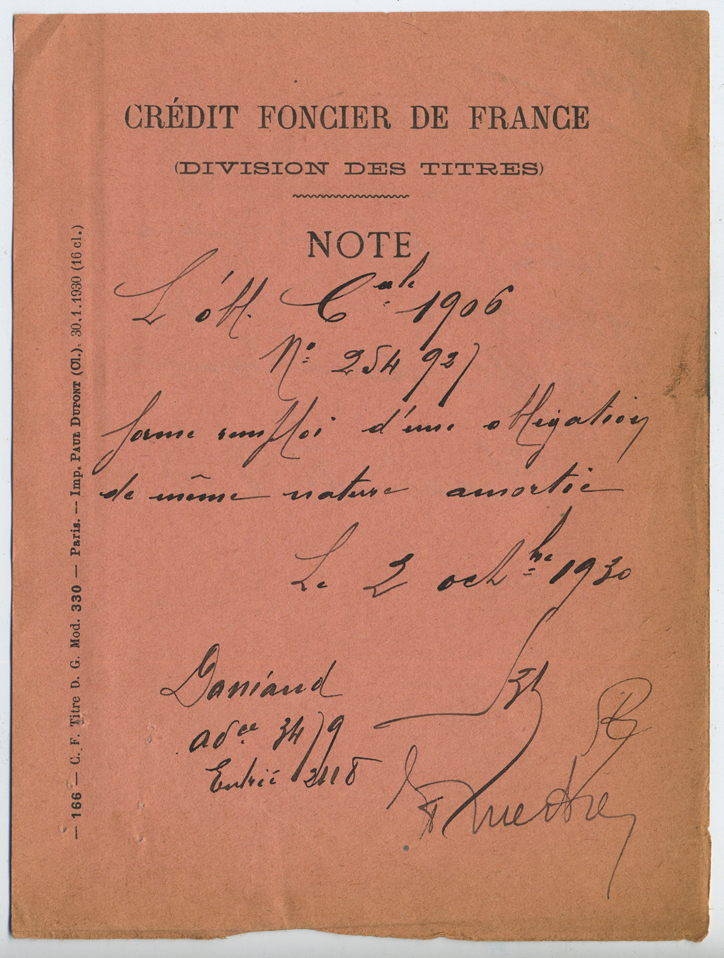 CRÉDIT FONCIER DE FRANCE
(DIVISION DES TITRES)
NOTE
L'obl. Cale 1906
No 254 927
forme remploi d'une obligation
de même nature amortie
Le 2 octbre 1930
Entrée
— 166 — C. F. Titre D. G. Mod. 330 — Paris. — Imp. PAUL DUPONT (Cl.). 30.1.1930 (16 cl.)